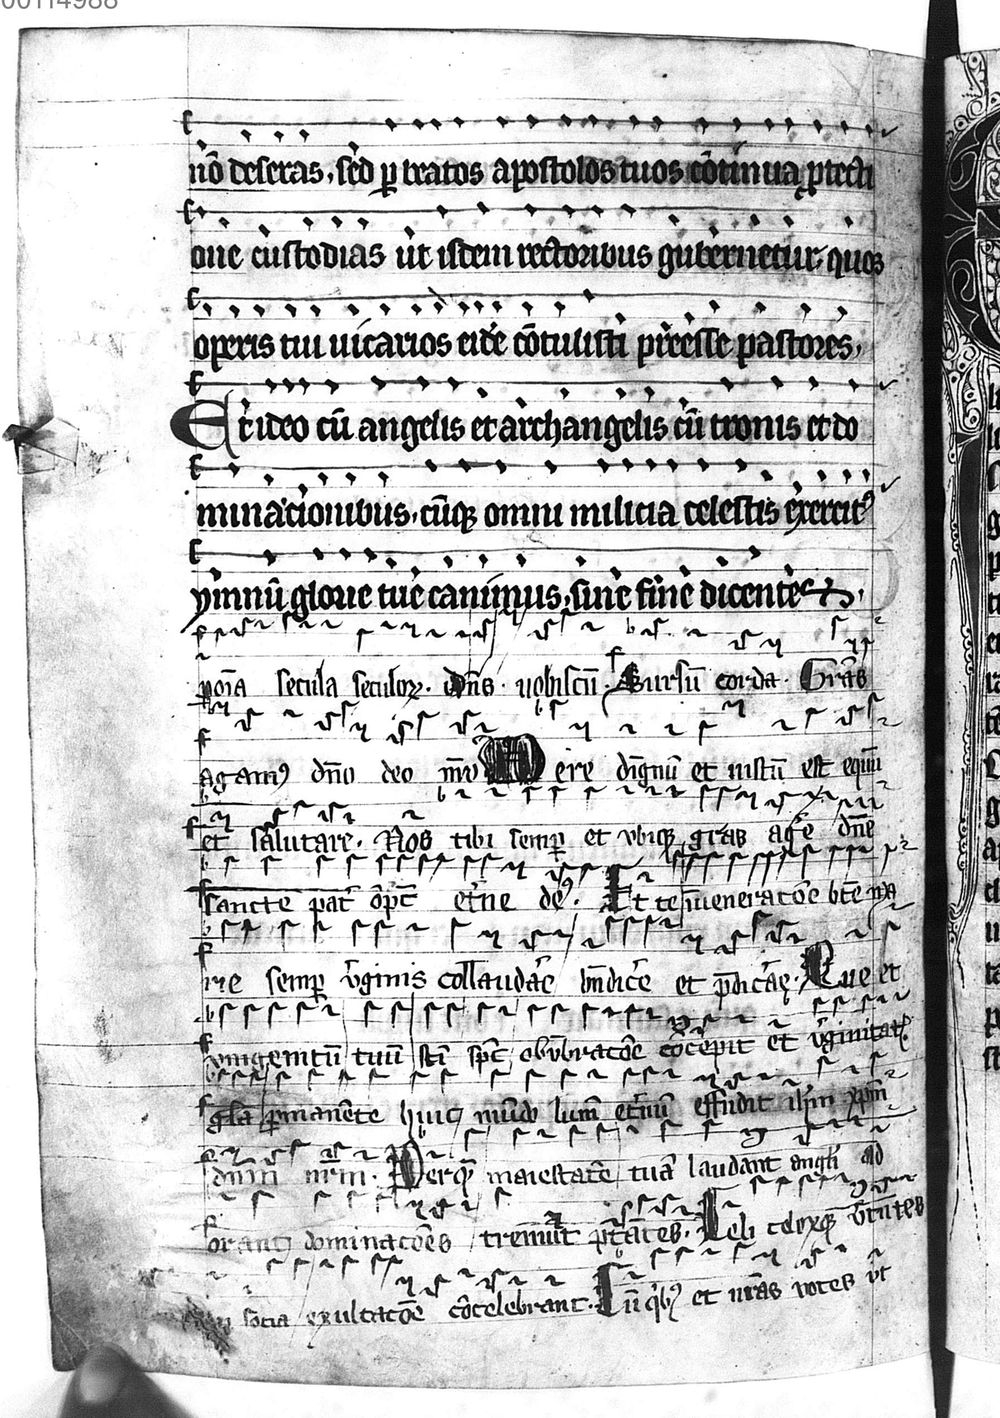 00114988
nō deseras, sed ꝑ beatos apostolos tuos cōtinua ꝓtecti
one custodias ut isdem rectoribus gubernetur, quos
operis tui uicarios eidē cōtulisti preesse pastores,
Et ideo cū angelis et archangelis cū tronis et do
minacionibus, cūqꝫ omni milicia celestis exercitꝰ
ymnū glorie tue canimus, sine fine dicentes
secula seculoꝝ. Dn̄s uobiscū Sursū corda. Gr̄as
agamꝰ dn̄o deo nr̄o Uere dignū et iustū est equū
et salutare. Nos tibi semꝑ et vbiqꝫ gr̄as agē dn̄e
sancte pat̄ om̄ps et̄ne deꝰ. Et te ī ueneratōe btē ma
rie semꝑ v̄ginis collaudāe bn̄dicē et p̄dicāe. Que et
vnigenitū tuū sc̄i sp̄c obūbratōe cōcepit et v̄ginitatꝭ
gl̄a ꝑmanēte huic mūdo lum̄ et̄nū effudit ih̄m xp̄m
dn̄m nr̄m. Per quē maiestatē tuā laudant angl̄i ad
orant dominacōēs tremūt ptātes. Celi celoꝝqꝫ v̄tutes
socia exultatōe cōcelebrant. Cū qͥbꝰ et nr̄as voces vt